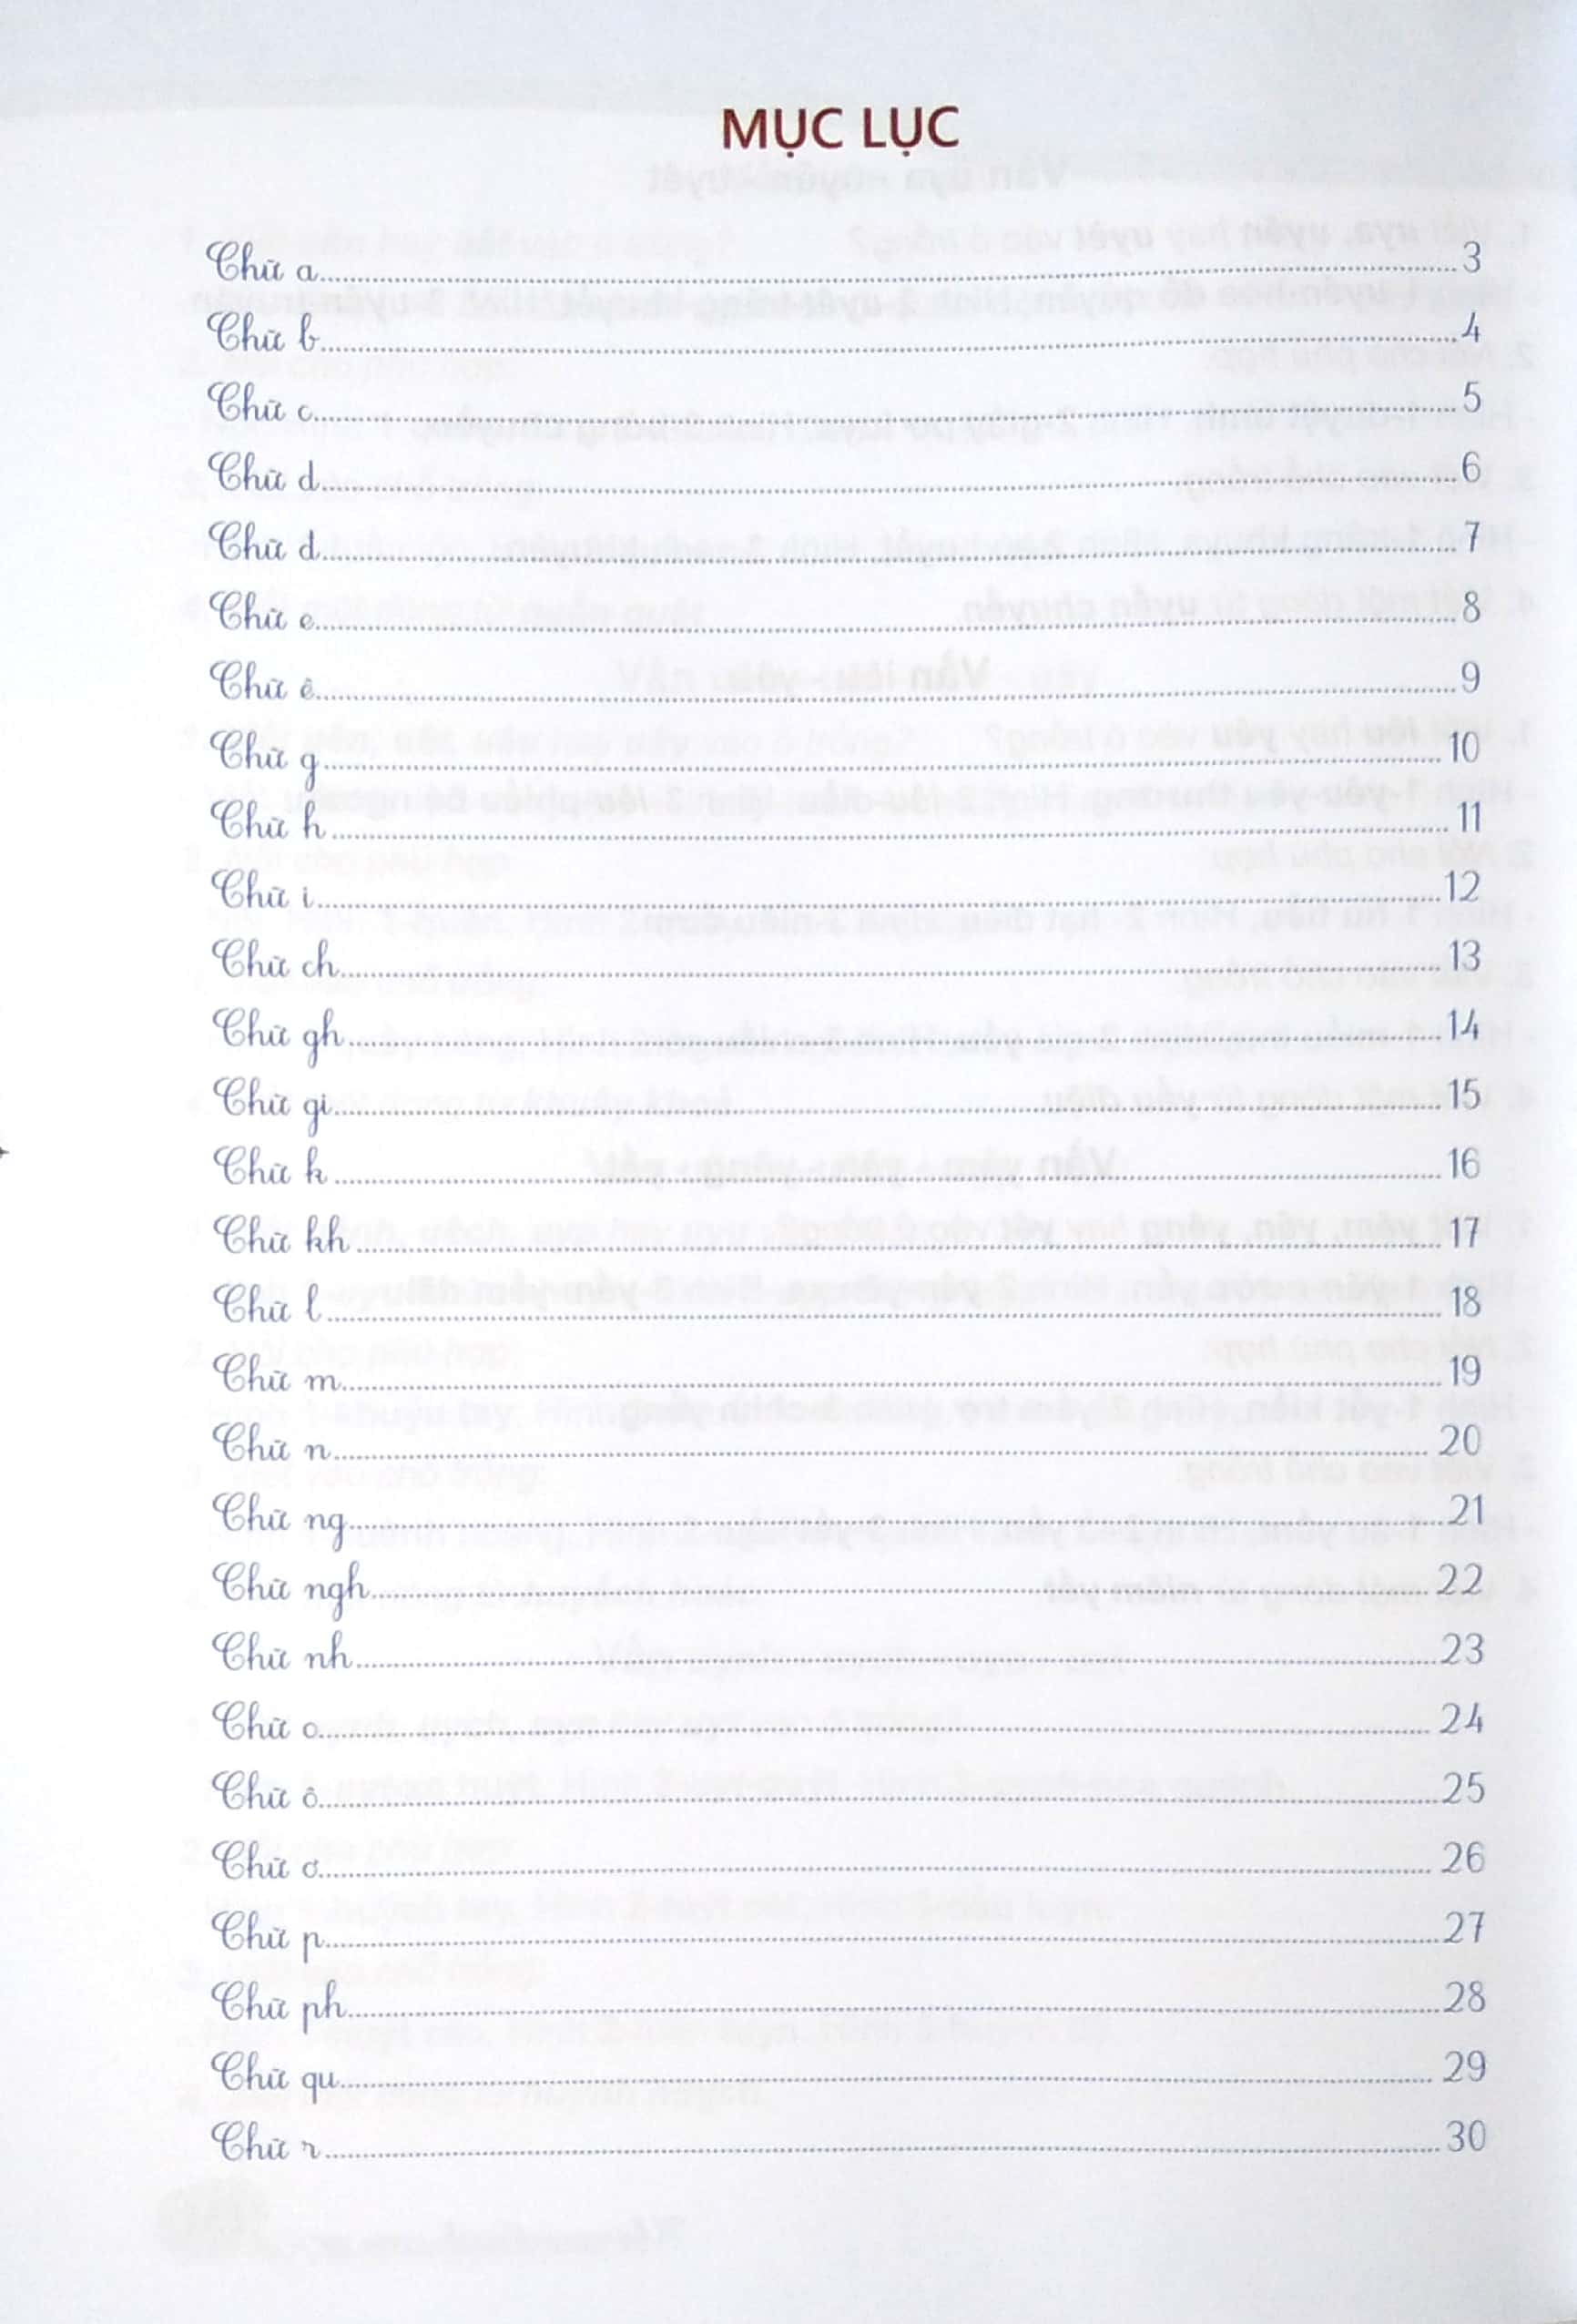 MỤC LỤC
Chữ a.......3
Chữ b.......4
Chữ c.......5
Chữ d.......6
Chữ d.......7
Chữ e.......8
Chữ ê.......9
Chữ g.......10
Chữ h.......11
Chữ i.......12
Chữ ch.......13
Chữ gh.......14
Chữ gi.......15
Chữ k.......16
Chữ kh.......17
Chữ l.......18
Chữ m.......19
Chữ n.......20
Chữ ng.......21
Chữ ngh.......22
Chữ nh.......23
Chữ o.......24
Chữ ô.......25
Chữ ơ.......26
Chữ p.......27
Chữ ph.......28
Chữ qu.......29
Chữ r.......30